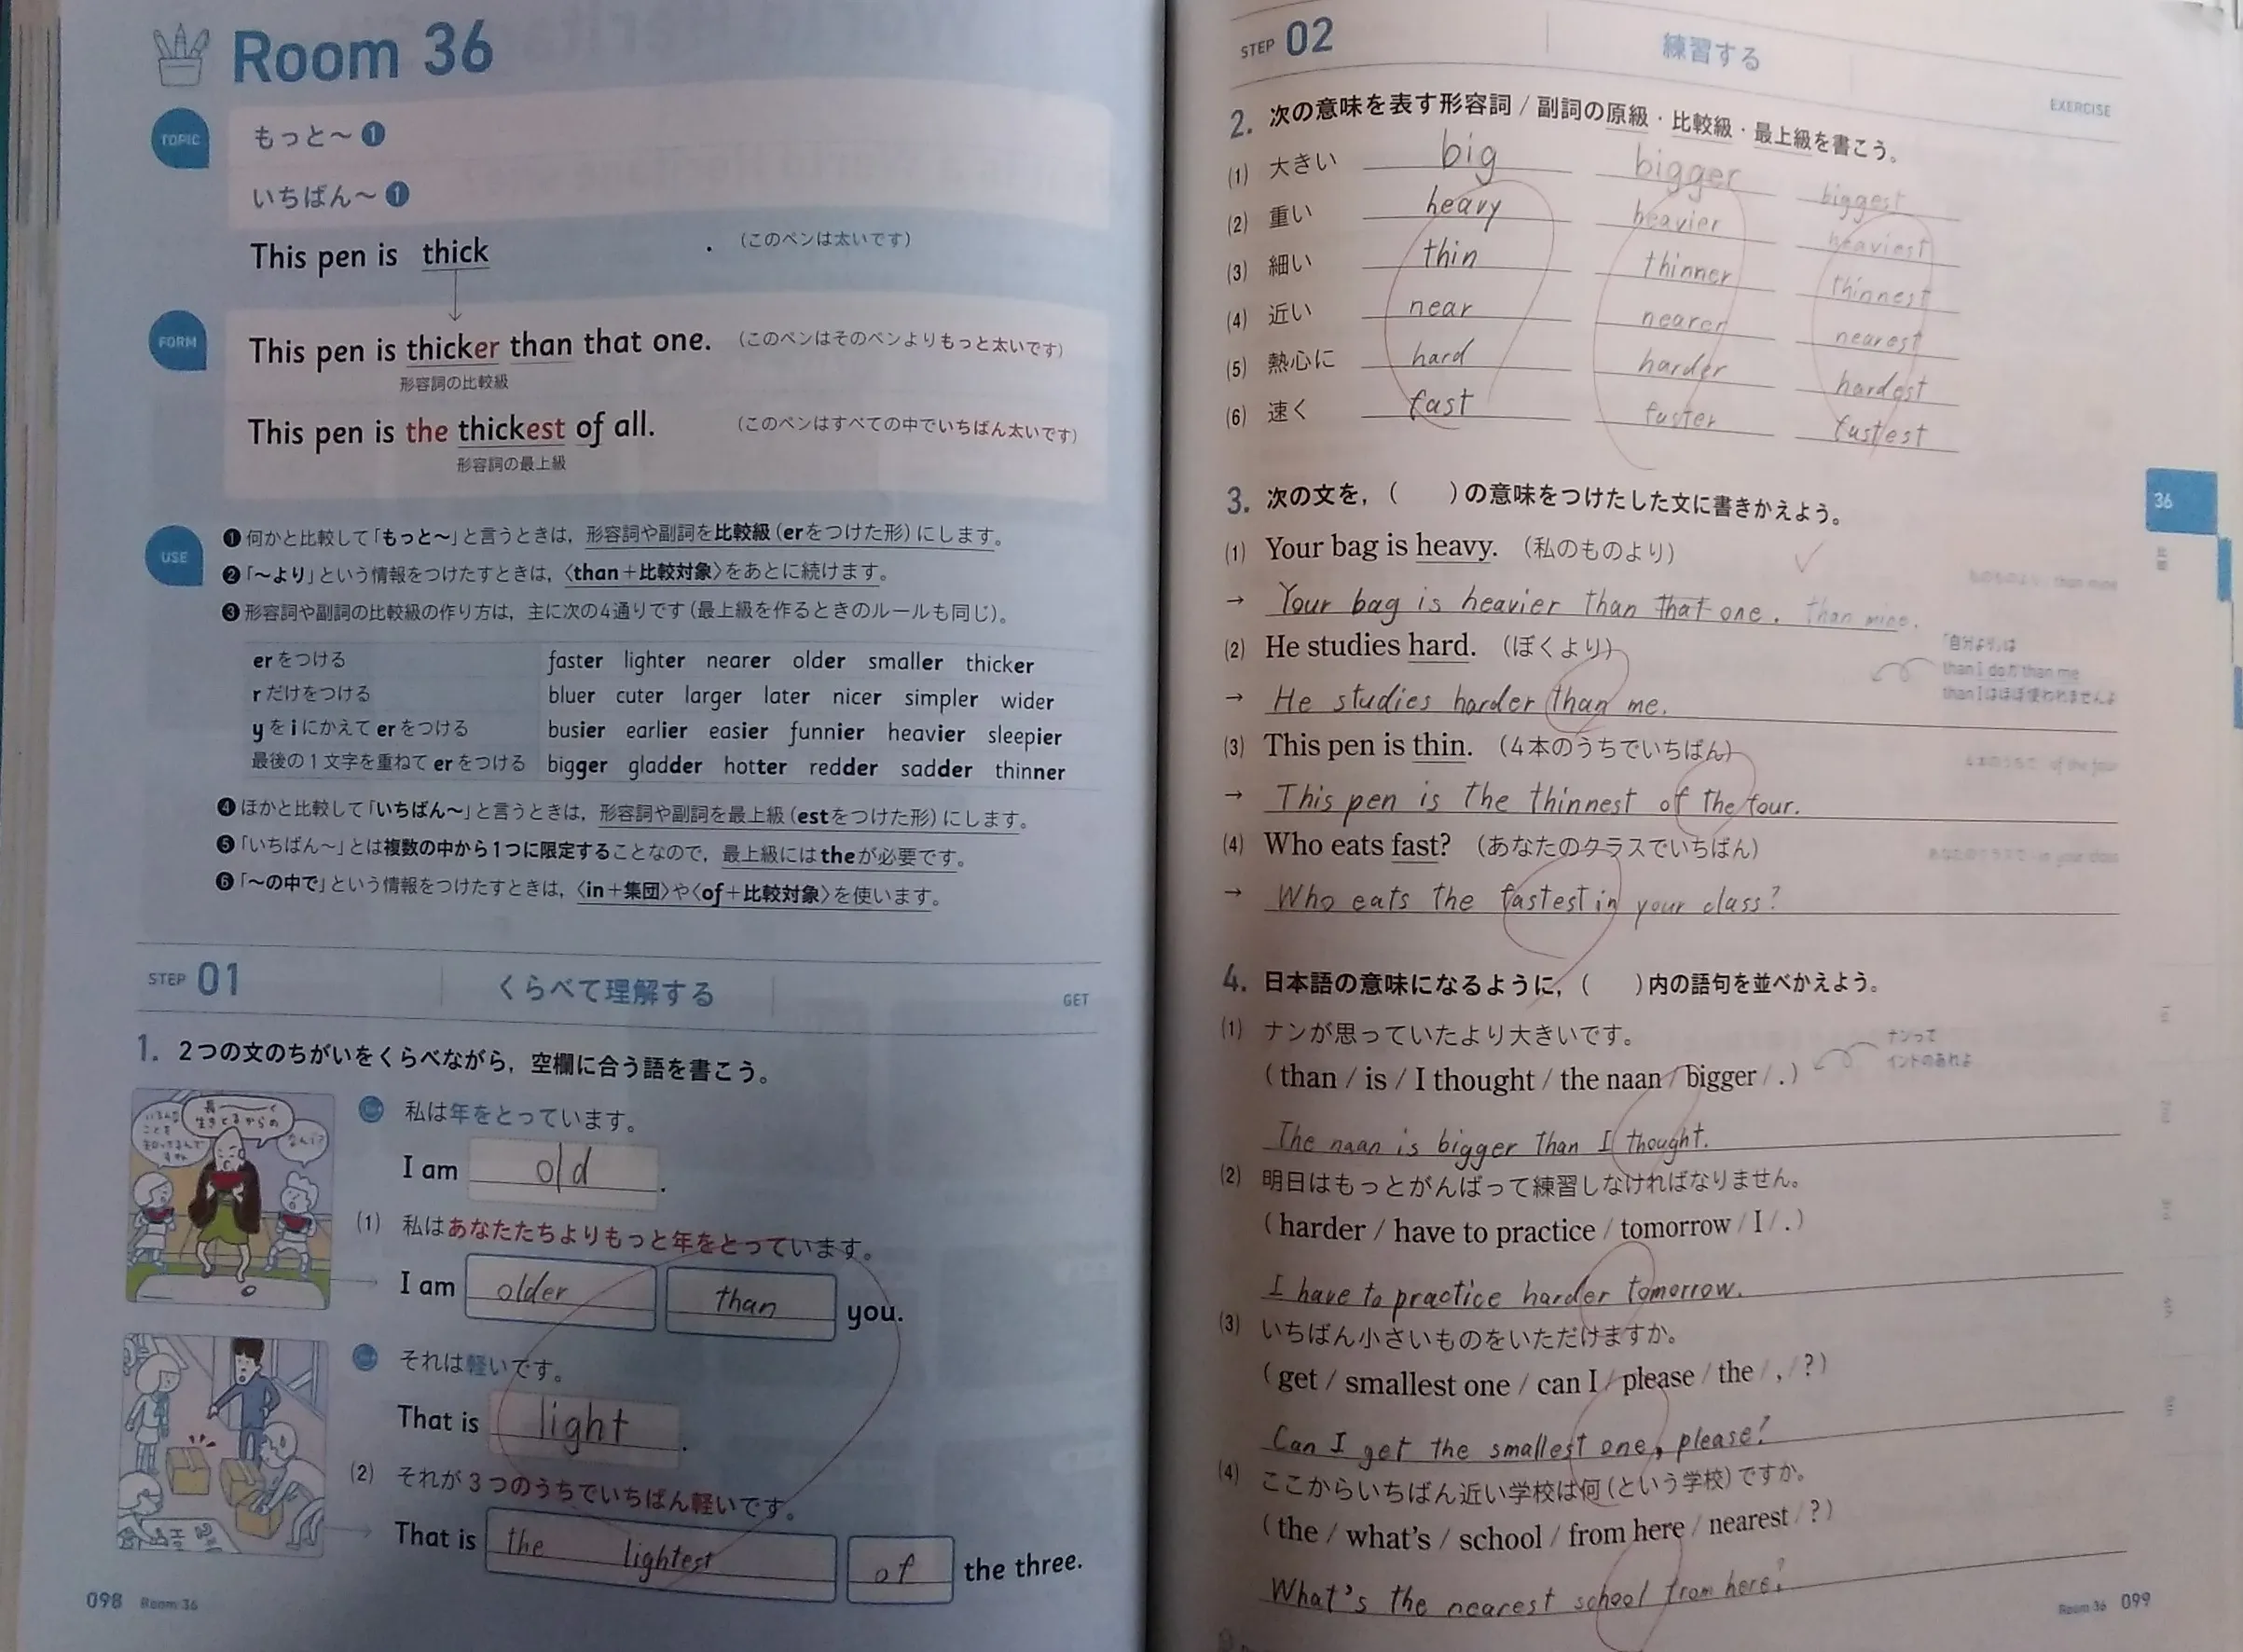 Room 36
TOPIC
もっと〜 1
いちばん〜 1
This pen is thick . (このペンは太いです)
FORM
This pen is thicker than that one. (このペンはそのペンよりもっと太いです)
形容詞の比較級
This pen is the thickest of all. (このペンはすべての中でいちばん太いです)
形容詞の最上級
USE
❶何かと比較して「もっと〜」と言うときは, 形容詞や副詞を比較級(erをつけた形)にします。
❷「〜より」という情報をつけたすときは,〈than+比較対象〉をあとに続けます。
❸形容詞や副詞の比較級の作り方は, 主に次の4通りです(最上級を作るときのルールも同じ)。
erをつける faster lighter nearer older smaller thicker
rだけをつける bluer cuter larger later nicer simpler wider
yをiにかえてerをつける busier earlier easier funnier heavier sleepier
最後の1文字を重ねてerをつける bigger gladder hotter redder sadder thinner
❹ほかと比較して「いちばん〜」と言うときは, 形容詞や副詞を最上級(estをつけた形)にします。
❺「いちばん〜」とは複数の中から1つに限定することなので, 最上級にはtheが必要です。
❻「〜の中で」という情報をつけたすときは,〈in+集団〉や〈of+比較対象〉を使います。
STEP 01 くらべて理解する GET
1. 2つの文のちがいをくらべながら, 空欄に合う語を書こう。
長〜く
生きてるからの
なんじ?
私は年をとっています。
I am old.
(1) 私はあなたたちよりもっと年をとっています。
I am older than you.
それは軽いです。
That is light.
(2) それが3つのうちでいちばん軽いです。
That is the lightest of the three.
098 Room 36
STEP 02 練習する EXERCISE
2. 次の意味を表す形容詞/副詞の原級・比較級・最上級を書こう。
(1) 大きい big bigger biggest
(2) 重い heavy heavier heaviest
(3) 細い thin thinner thinnest
(4) 近い near nearer nearest
(5) 熱心に hard harder hardest
(6) 速く fast faster fastest
3. 次の文を, ( )の意味をつけたした文に書きかえよう。
(1) Your bag is heavy. (私のものより)
私のものより than mine
→ Your bag is heavier than that one. than mine.
(2) He studies hard. (ぼくより)
「自分より」は
than I doか than me
than Iはほぼ使われませんよ
→ He studies harder than me.
(3) This pen is thin. (4本のうちでいちばん)
4本のうちで of the four
→ This pen is the thinnest of the four.
(4) Who eats fast? (あなたのクラスでいちばん)
あなたのクラスで in your class
→ Who eats the fastest in your class?
4. 日本語の意味になるように, ( )内の語句を並べかえよう。
(1) ナンが思っていたより大きいです。
ナンって
インドのあれよ
( than / is / I thought / the naan / bigger / . )
The naan is bigger than I thought.
(2) 明日はもっとがんばって練習しなければなりません。
( harder / have to practice / tomorrow / I / . )
I have to practice harder tomorrow.
(3) いちばん小さいものをいただけますか。
( get / smallest one / can I / please / the / , / ? )
Can I get the smallest one, please?
(4) ここからいちばん近い学校は何(という学校)ですか。
( the / what's / school / from here / nearest / ? )
What's the nearest school from here?
36
比較
Room 36 099